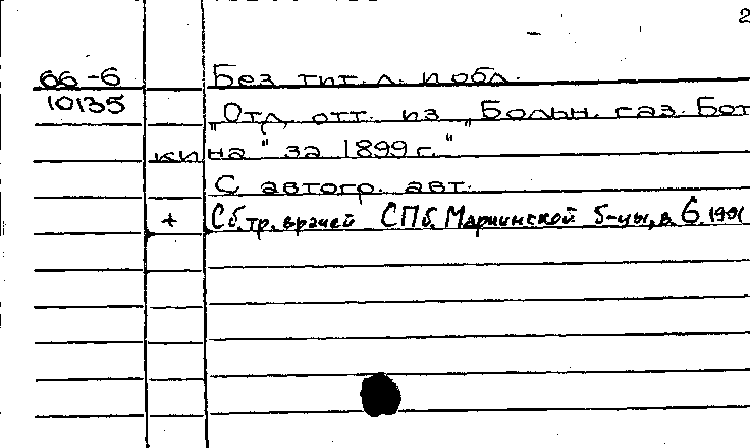 2
66-6 Без тит. л. и обл.
10135 "Отд. отт. из "Больн. газ. Бот
кина" за 1899 г."
С автогр. авт.
+ Сб. тр. врачей СПб. Мариинской б-цы, в. 6. 1901